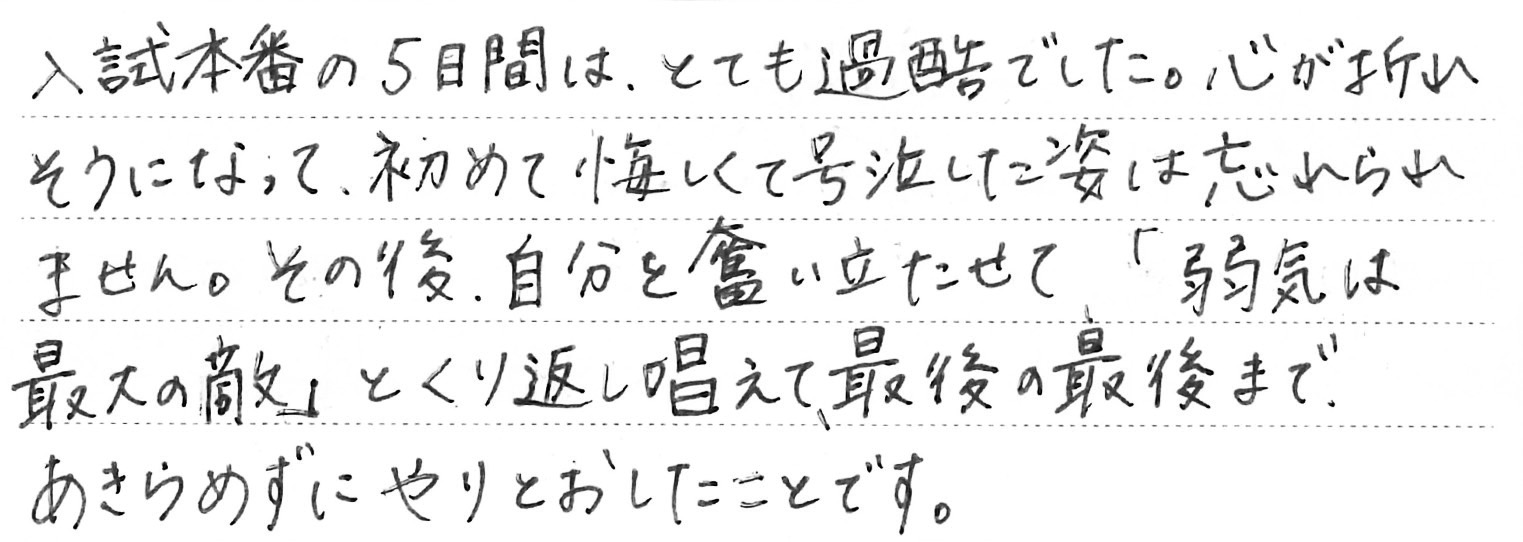 入試本番の5日間は、とても過酷でした。心が折れ
そうになって、初めて悔しくて号泣した姿は忘れられ
ません。その後、自分を奮い立たせて、「弱気は
最大の敵」とくり返し唱えて、最後の最後まで、
あきらめずにやりとおしたことです。